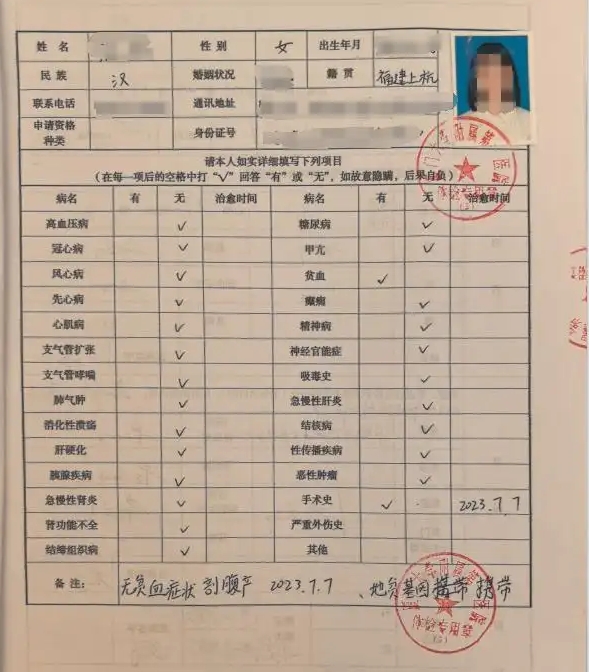 姓 名 性 别 女 出生年月
民 族 汉 婚姻状况 籍 贯 福建上杭
联系电话 通讯地址
申请资格种类 身份证号
请本人如实详细填写下列项目
(在每一项后的空格中打“√”回答“有”或“无”,如故意隐瞒,后果自负)
病名 有 无 治愈时间 病名 有 无 治愈时间
高血压病 √ 糖尿病 √
冠心病 √ 甲亢 √
风心病 √ 贫血 √
先心病 √ 癫痫 √
心肌病 √ 精神病 √
支气管扩张 √ 神经官能症 √
支气管哮喘 √ 吸毒史 √
肺气肿 √ 急慢性肝炎 √
消化性溃疡 √ 结核病 √
肝硬化 √ 性传播疾病 √
胰腺疾病 √ 恶性肿瘤 √
急慢性肾炎 √ 手术史 √ 2023.7.7
肾功能不全 √ 严重外伤史
结缔组织病 √ 其他
备 注: 无贫血症状 剖腹产 2023.7.7 、地贫基因携带 携带